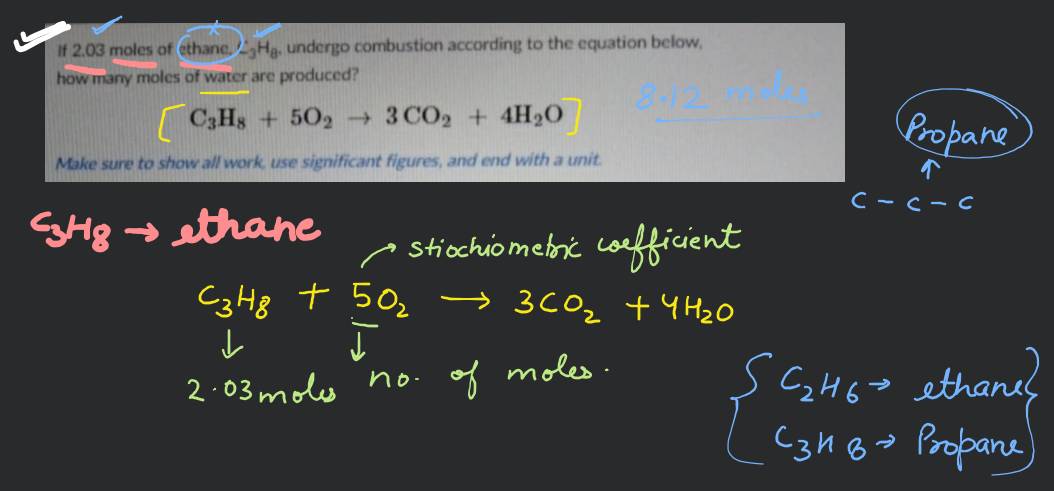 If 2.03 moles of ethane, C₃H₈, undergo combustion according to the equation below,
how many moles of water are produced?
8.12 moles
C₃H₈ + 5O₂ → 3 CO₂ + 4H₂O
Propane
Make sure to show all work, use significant figures, and end with a unit.
C - C - C
C₃H₈ → ethane
stiochiometric coefficient
C₃H₈ + 5O₂ → 3CO₂ + 4H₂O
2.03 moles
no. of moles.
C₂H₆ → ethane
C₃H₈ → Propane